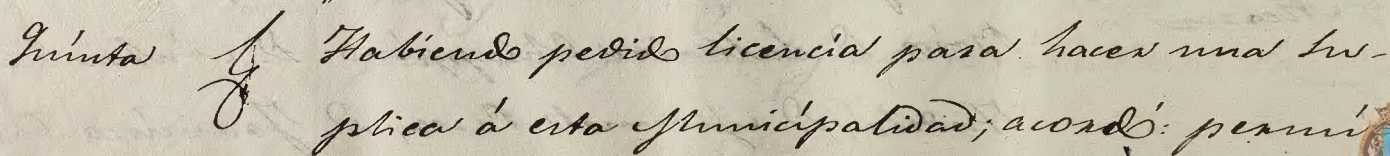 Quinta § Habiendo pedido licencia para hacer una Su-
plica á esta Municipalidad; acordó: permi